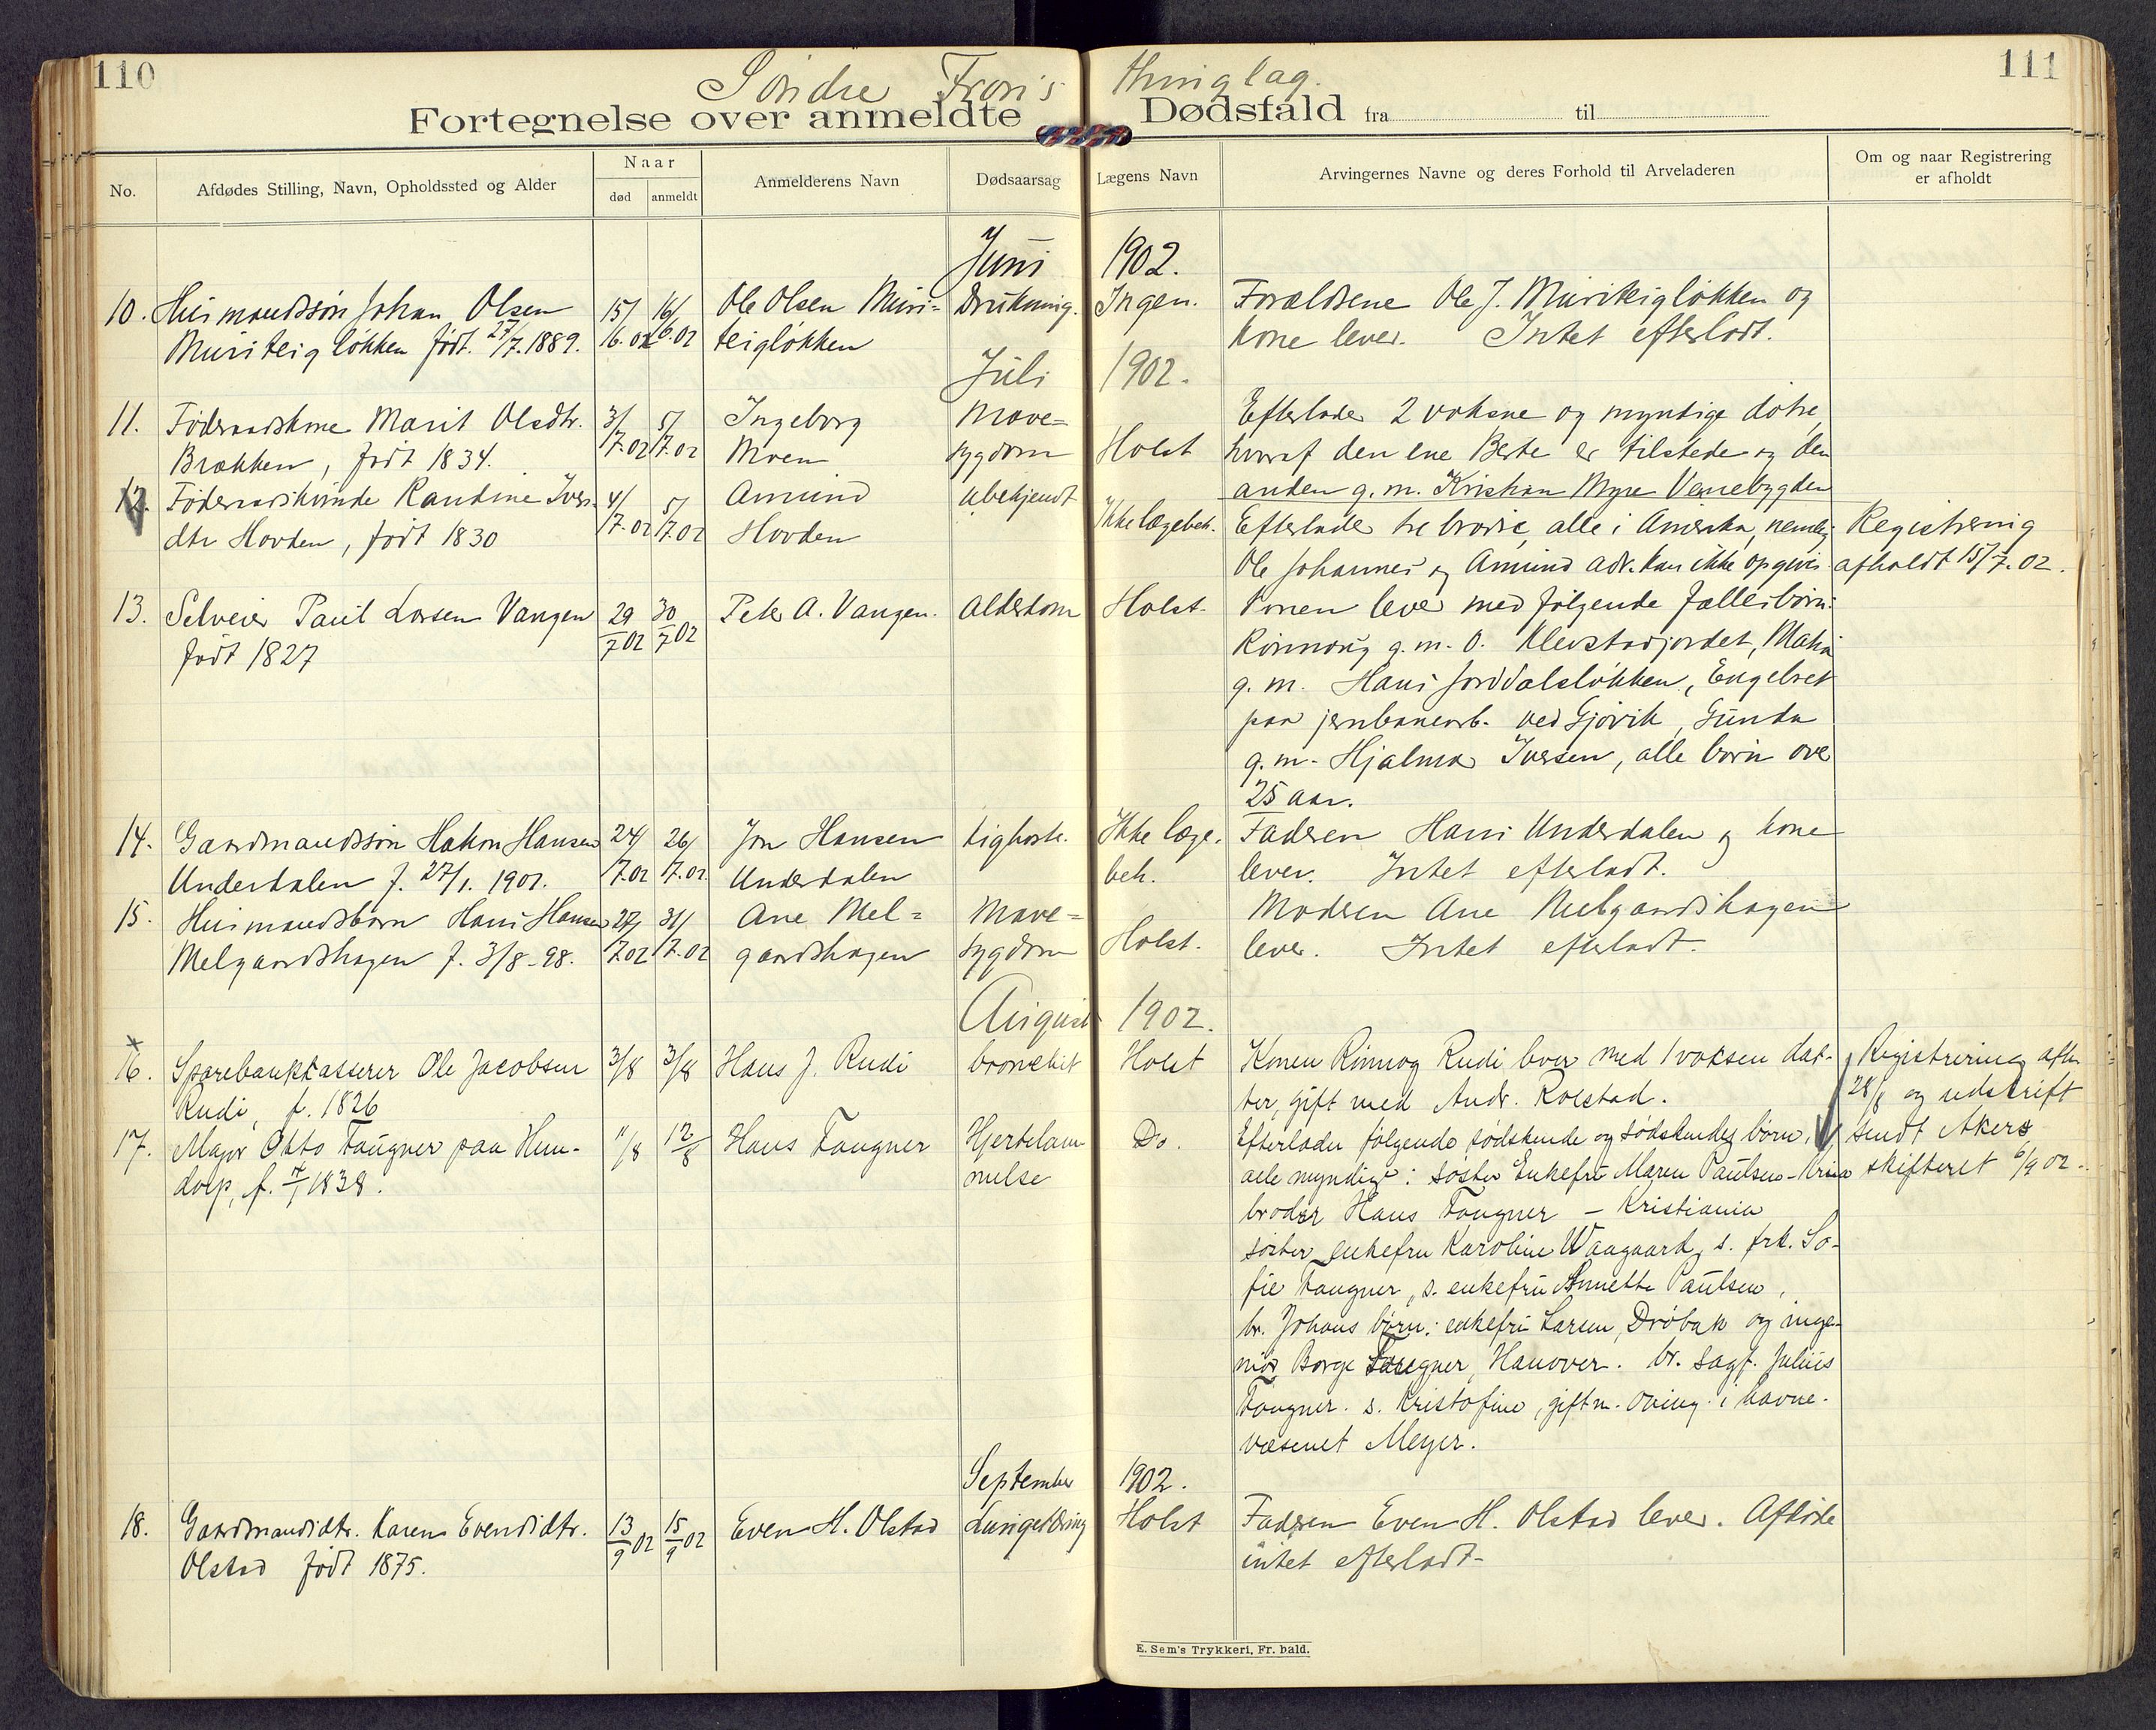 110
111
Söndre Fron's thinglag.
Fortegnelse over anmeldte Dødsfald fra til
No.
Afdødes Stilling, Navn, Opholdssted og Alder
Naar
død
anmeldt
Anmelderens Navn
Dødsaarsag
Lægens Navn
Arvingernes Navne og deres Forhold til Arveladeren
Om og naar Registrering
er afholdt
Juni 1902.
10. Husmandssön Johan Olsen 15/ 16/ Ole Olsen Muri= Drukning. Ingen. Forældrene Ole J. Muriteigløkken og
Muriteigløkken født. 27/7. 1889. 6.02 6.02 teigløkken kone lever. Intet efterladt.
Juli 1902.
11. Föderaadskone Marit Olsdtr. 3/ 5/ Ingeborg Mave= Efterlader 2 voksne og myndige døtre,
Brækken, født 1834. 7.02 7.02 Moen sygdom Holst hvoraf den ene Berte er tilstede og den
anden g. m. Kristian Myre Venebygden
12. Föderaadskvinde Randine Ivers- 4/ 5/ Amund ubekjendt Ikke lægebeh. Efterlader tre brødre, alle i Amerika, nemlig Registrering
dtr Hovden, født 1830 7.02 7.02 Hovden Ole Johannes og Amund adr. kan ikke opgives afholdt 15/7. 02.
13. Selveier Paul Larsen Vangen 29 30 Peter A. Vangen. Alderdom Holst. Konen lever med følgende fællesbørn:
født 1827 7 02 7 02 Rönnoug g. m. O. Klevstadjordet, Mathia
g. m. Hans Jorddalsløkken, Engebret
paa jernbanearb. ved Gjøvik, Gunda
g. m. Hjalmar Iversen, alle børn over
25 aar.
14. Gaardmandssön Hakon Hansen 24/ 26/ Jon Hansen kighoste. Ikke læge- Faderen Hans Underdalen og kone
Underdalen f. 27/1. 1901. 7.02 7.02. Underdalen beh. lever. Intet efterladt.
15. Husmandsbarn Hans Hansen 27/ 31/ Ane Mel= Mave= Moderen Ane Melgaardshagen
Melgaardshagen f. 3/8-98. 7.02 7.02 gaardshagen sygdom Holst. lever. Intet efterladt.
August 1902.
16. Sparebankkasserer Ole Jacobsen 3/8 3/8 Hans J. Rudi bronchit Holst Konen Rönnog Rudi lever med 1 voksen dat- Registrering afh.
Rudi, f. 1826 ter, gift med Andr. Kolstad. 28/8 og udskrift
17. Major Otto Faugner paa Hun- 11/8 12/8 Hans Faugner Hjertelam- Do. Efterlader følgende sødskende og sødskendes børn, sendt Akers
dorp, f. 1838. melse alle myndige: søster Enkefru Maren Paulsen - Kria skifteret 6/9 02.
broder Hans Faugner - Kristiania
søster enkefru Karoline Waagaard, s. frk. So-
fie Faugner, s. enkefru Annette Paulsen,
br. Johans børn: enkefru Larsen, Drøbak og inge-
niør Borge Faugner, Hanover. br. sagf. Julius
Faugner. s. Kristofine, gift m. i havne-
væsenet Meyer.
September 1902.
18. Gaardmandsdtr. Karen Evensdtr. 13 15 Even H. Olstad Lungetæring Holst Faderen Even H. Olstad lever. Afdøde
Olstad født 1875. 9 02 9 02 intet efterladt-
E. Sem's Trykkeri, Fr. hald.